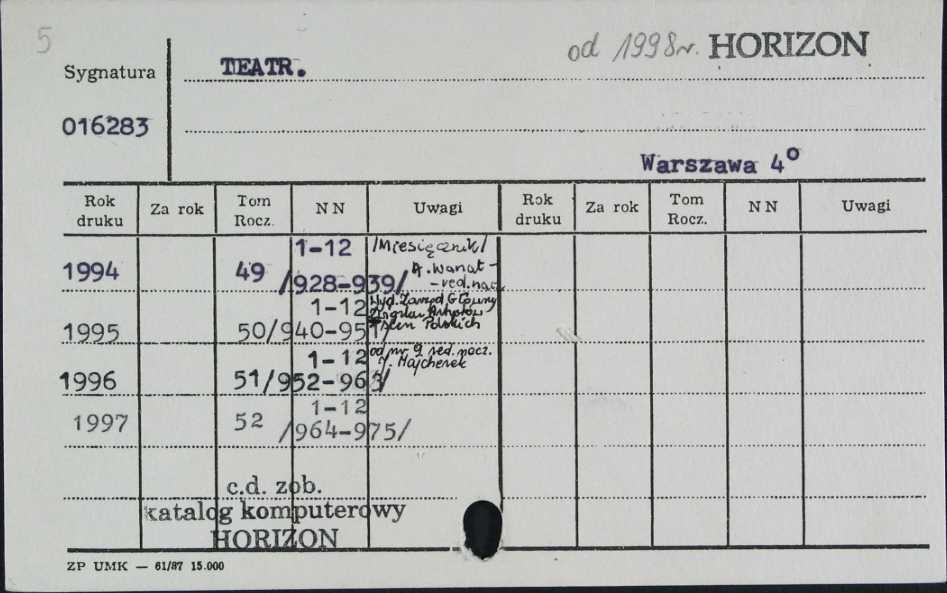 5
od 1998r. HORIZON
Sygnatura
TEATR.
016283
Warszawa 4º
Rok druku Za rok Tom Rocz. NN Uwagi Rok druku Za rok Tom Rocz. NN Uwagi
1994 49 1-12 /928-939/ /Miesięcznik/
A. Wanat -
- red. nacz.
1995 50 1-12 /940-951/ Wyd. Zarząd Główny
Artystów
Scen Polskich
1996 51 1-12 /952-963/ od nr 9 red. nacz.
J. Majcherek
1997 52 1-12 /964-975/
c.d. zob.
katalog komputerowy
HORIZON
ZP UMK — 61/87 15.000